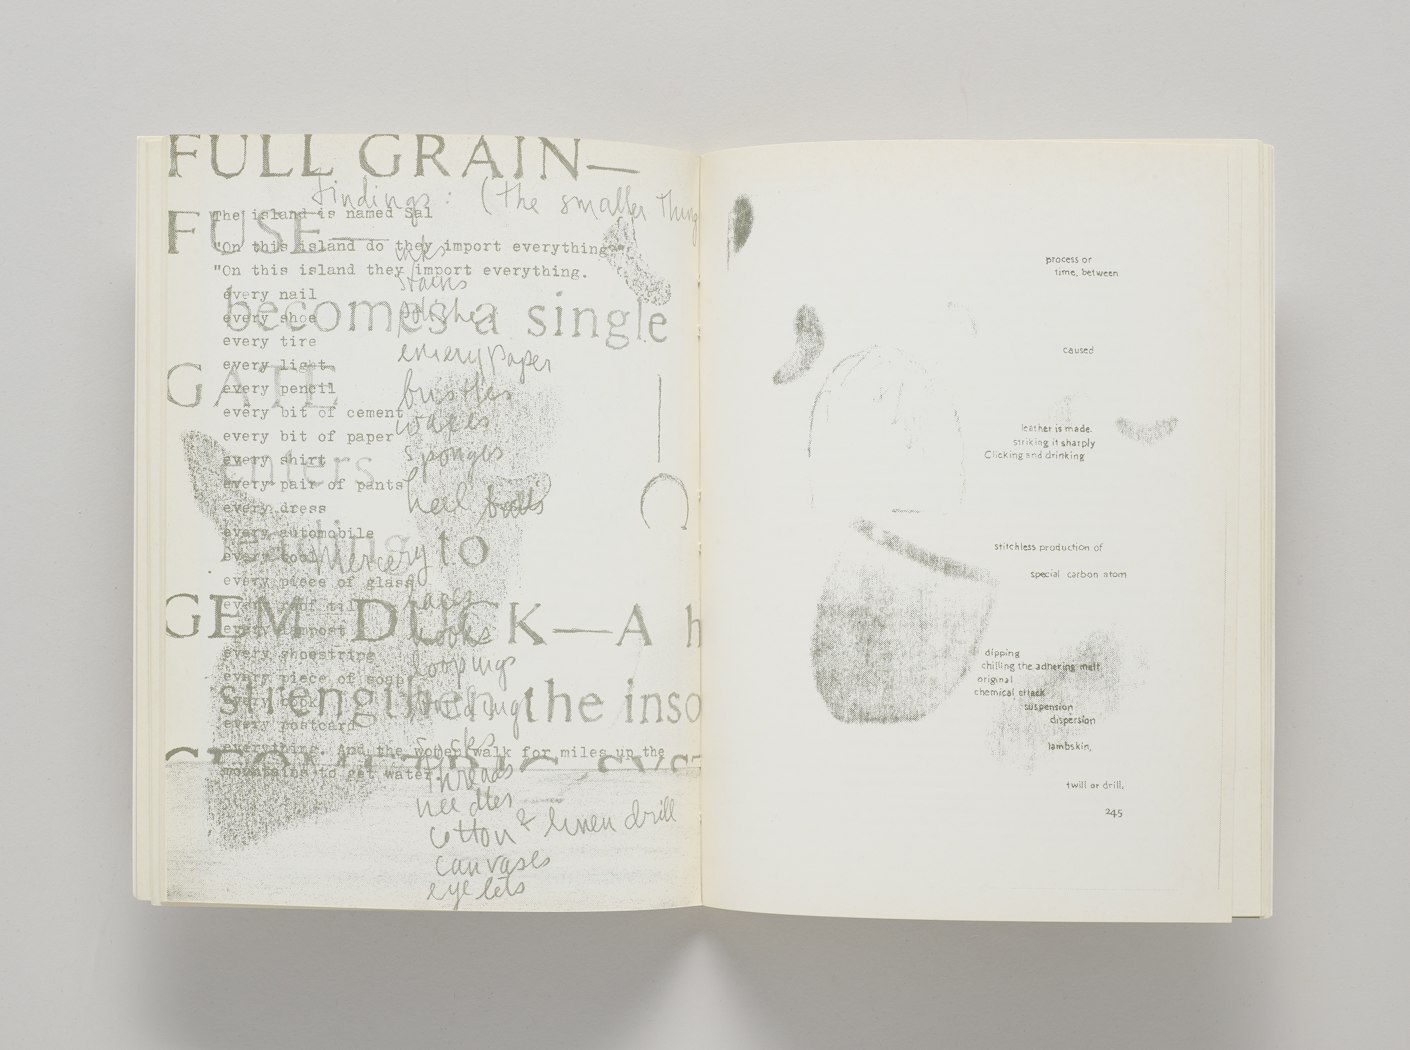 FULL GRAIN—
findings: (the smaller thing
The island is named Sal
FUSE—
"On this island do they import everything
inks
"On this island they import everything.
stains
every nail
becomes a single
every shoe
polishes
every tire
emery paper
every light
GATE
every pencil
bristles
every bit of cement
waxes
every bit of paper
enters
every shirt
sponges
every pair of pants
heel balls
every dress
every automobile
to
every tool
mercery
every piece of glass
laces
GEM DUCK—A h
every lampost
hooks
every shoestring
loopings
every piece of soap
strengthen the inso
every book
every postcard
everything. And the women walk for miles up the
GEOMETRIC SYST
mountains to get water.
threads
needles
cotton & linen drill
canvases
eyelets
process or
time, between
caused
leather is made.
striking it sharply
Clicking and drinking
stitchless production of
special carbon atom
dipping
chilling the adhering melt
original
chemical attack
suspension
dispersion
lambskin,
twill or drill.
245